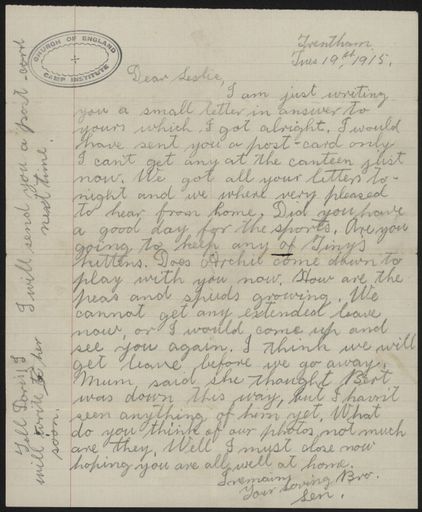 CHURCH OF ENGLAND
CAMP INSTITUTE
Trentham
Tues 19th, 1915.
Dear Leslie,
I am just writing
you a small letter in answer to
yours which I got alright. I would
have sent you a post-card only
I can't get any at the canteen just
now. We got all your letters to-
night and we where very pleased
to hear from home. Did you have
a good day for the sports. Are you
going to keep any of Tinys
kittens. Does Archie come down to
play with you now. How are the
peas and spuds growing. We
cannot get any extended leave
now or I would come up and
see you again. I think we will
get leave before we go away.
Mum, said she thought Bert
was down this way, but I havn't
seen anything of him yet. What
do you think of our photos, not much
are they. Well I must close now
hoping you are all well at home.
I remain,
Your loving Bro.
Len.
Tell I
will write to her
soon.
I will send you a post-card
next time.